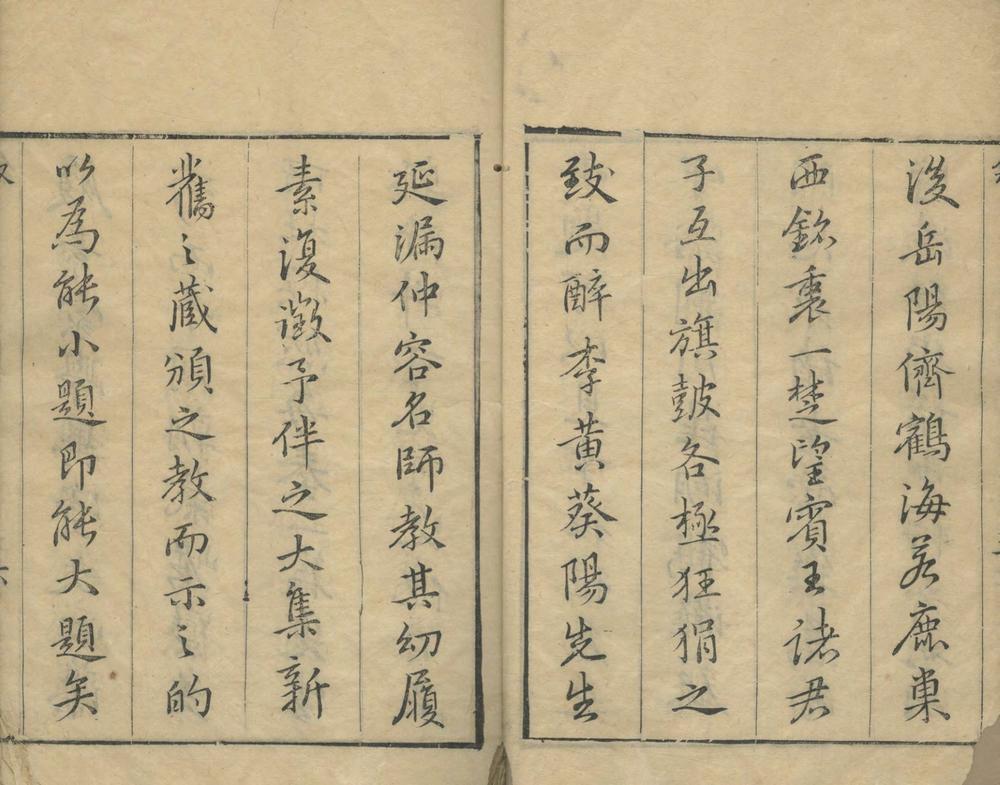 後岳陽儕鶴海若鹿巢
西銘裏一楚望賓王諸君
子互出旗鼓各極狂狷之
致而醉李黃葵陽先生
延漏仲容名師教其幼履
素復徵予伴之大集新
舊之藏頒之教而示之的
以為能小題即能大題矣